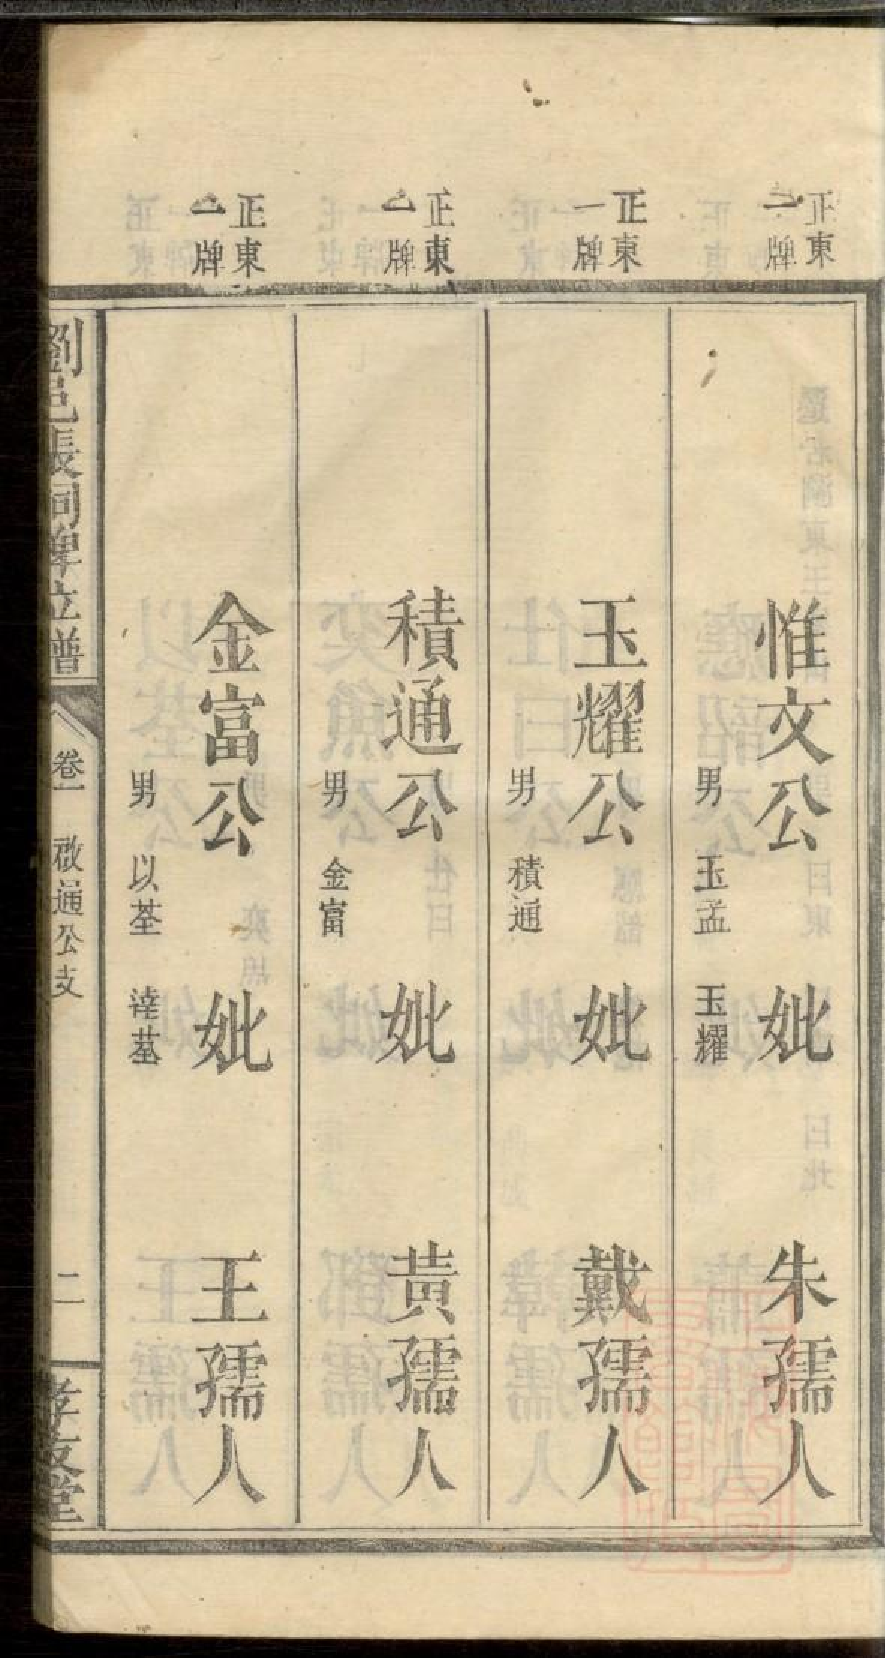 正東
一牌
惟文公 妣 朱孺人
男 玉孟 玉耀
正東
一牌
玉耀公 妣 戴孺人
男 積通
正東
一牌
積通公 妣 黃孺人
男 金富
正東
一牌
金富公 妣 王孺人
男 以荃
劉邑張祠牌位譜
卷一 啟通公支 二
孝友堂